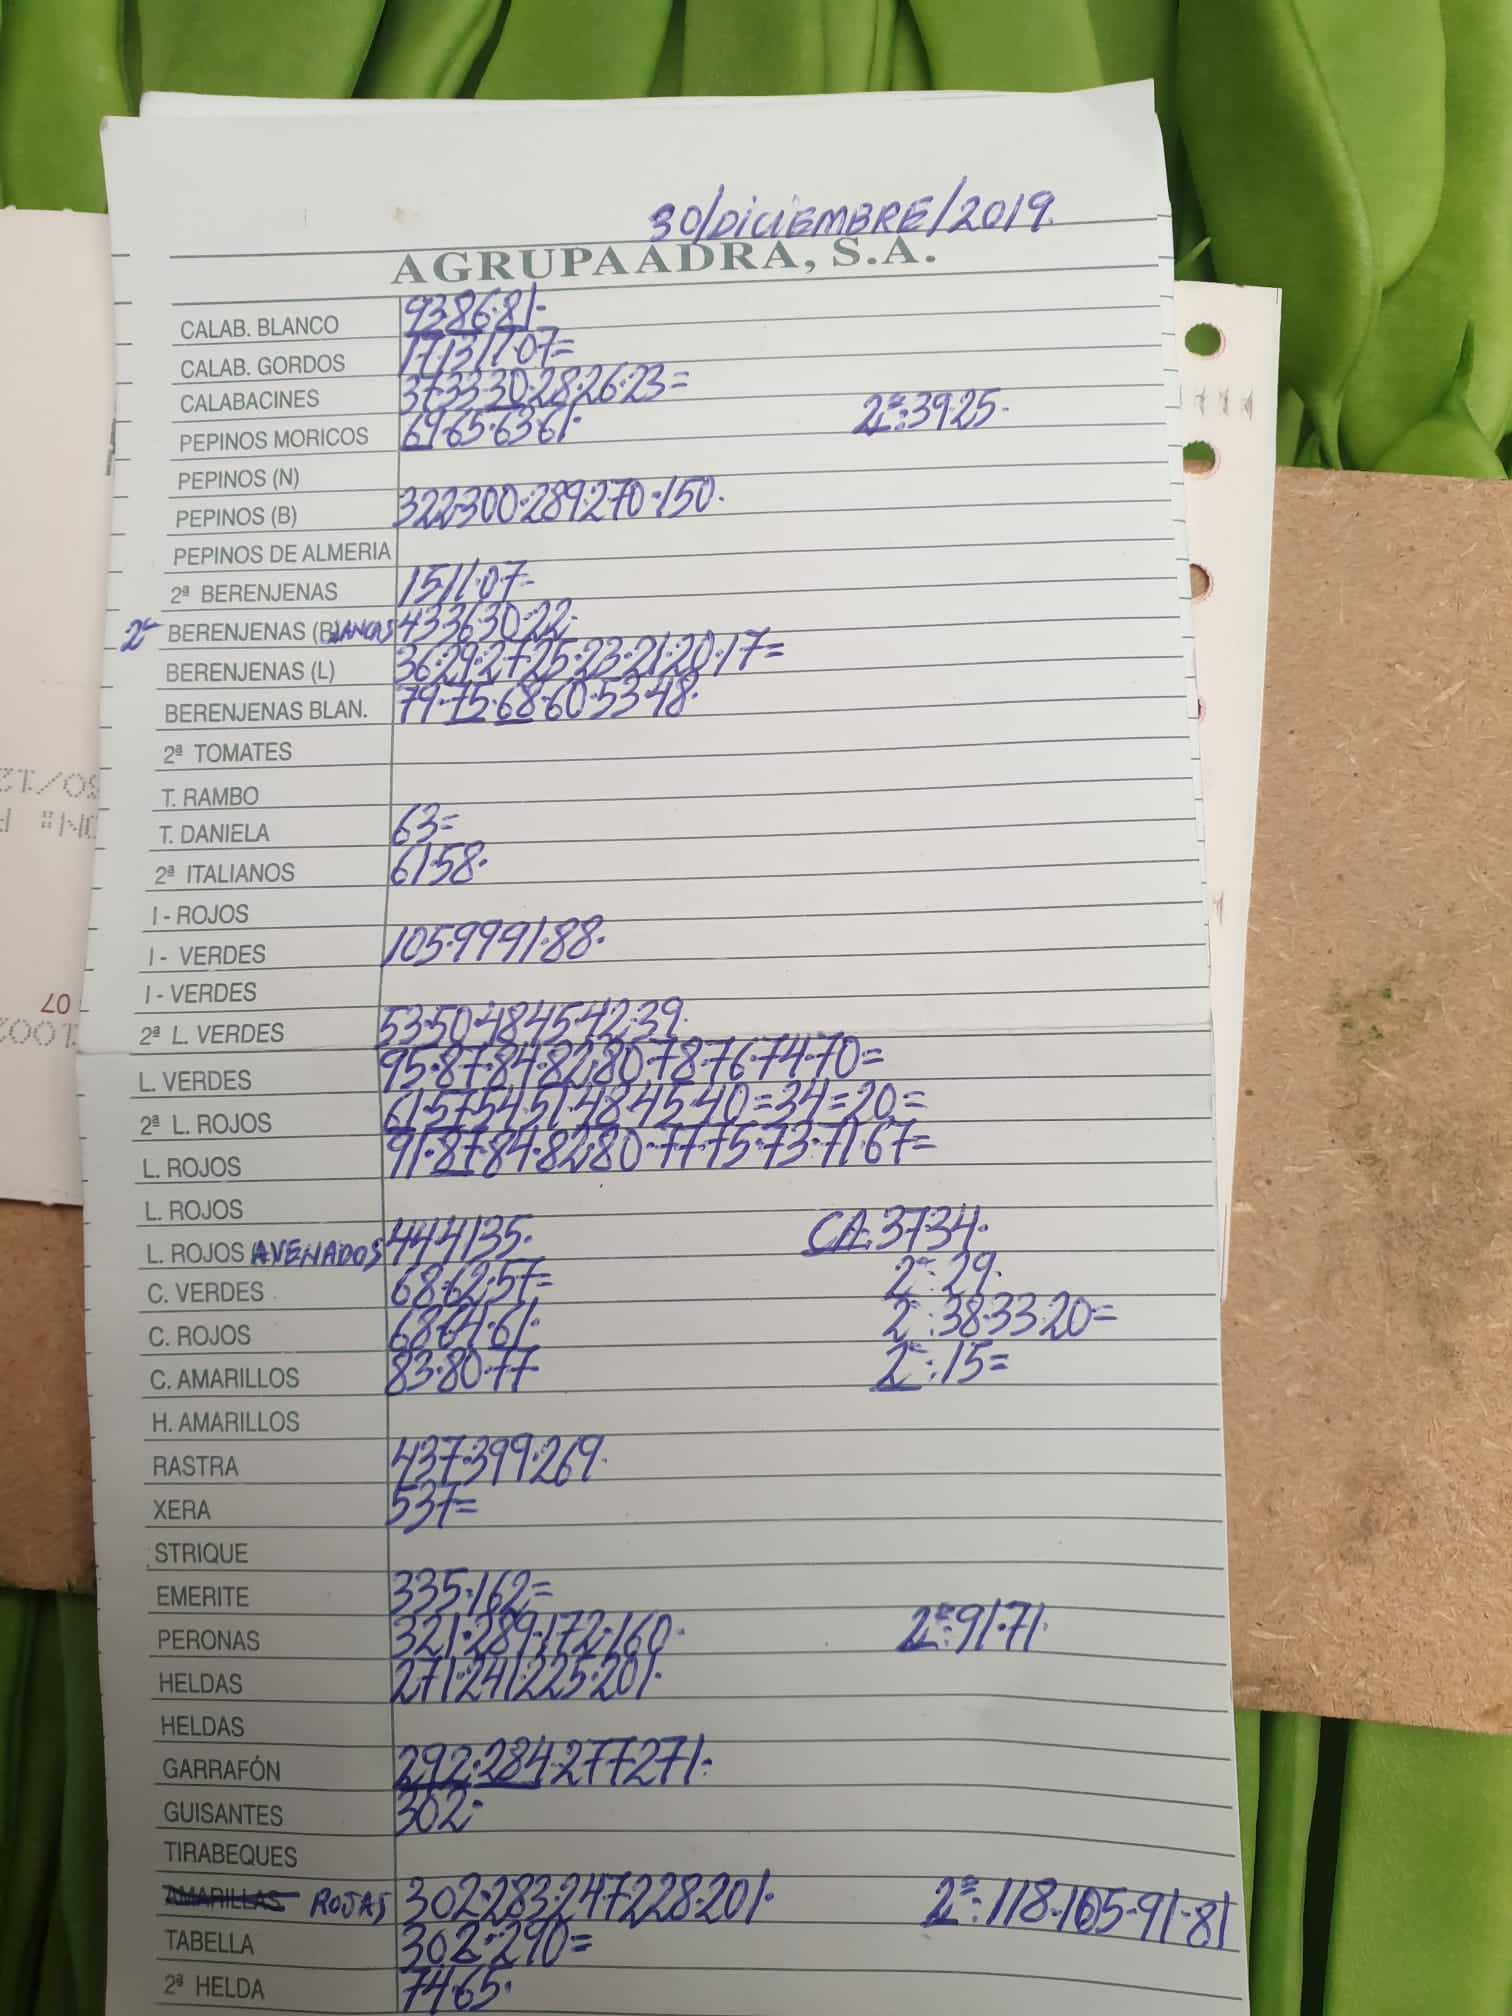 30/DICIEMBRE/2019.
AGRUPAADRA, S.A.
CALAB. BLANCO 93·86·81·
CALAB. GORDOS 17·13·11·07=
CALABACINES 37·33·30·28·26·23=
PEPINOS MORICOS 69·65·63·61· 2ª:39·25·
PEPINOS (N)
PEPINOS (B) 322·300·289·270·150·
PEPINOS DE ALMERIA
2ª BERENJENAS 15·11·07=
2ª BERENJENAS (BLANCAS 43·36·30·22·
BERENJENAS (L) 36·29·27·25·23·21·20·17=
BERENJENAS BLAN. 79·75·68·60·53·48·
2ª TOMATES
T. RAMBO
T. DANIELA 63=
2ª ITALIANOS 61·58·
I - ROJOS
I - VERDES 105·99·91·88·
I - VERDES
2ª L. VERDES 53·50·48·45·42·39·
L. VERDES 95·87·84·82·80·78·76·74·70=
2ª L. ROJOS 61·57·54·51·48·45·40=34=20=
L. ROJOS 91·87·84·82·80·77·75·73·71·67=
L. ROJOS
L. ROJOS AVENADOS 44·41·35· CA:37·34·
C. VERDES 68·62·57= 2ª:29·
C. ROJOS 68·64·61· 2ª:38·33·20=
C. AMARILLOS 83·80·77 2ª:15=
H. AMARILLOS
RASTRA 437·399·269·
XERA 537=
STRIQUE
EMERITE 335·162=
PERONAS 321·289·172·160· 2ª:91·71·
HELDAS 271·241·225·201·
HELDAS
GARRAFÓN 292·284·277·271·
GUISANTES 302·
TIRABEQUES
AMARILLAS ROJAS 302·283·247·228·201· 2ª:118·105·91·81
TABELLA 302·290=
2ª HELDA 74·65·
07